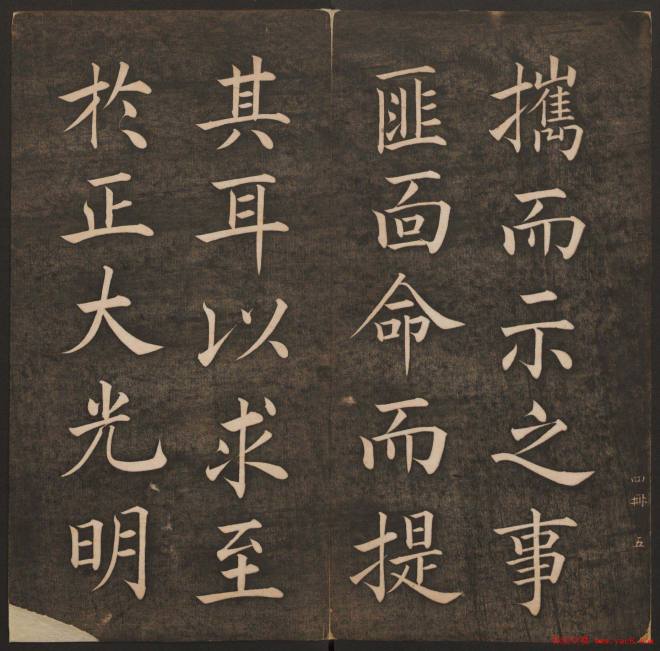 攜而示之事
匪面命而提
其耳以求至
於正大光明
四冊 五